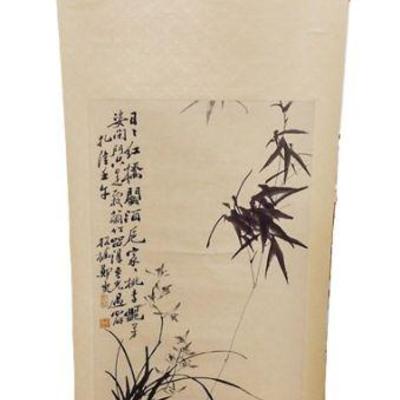 日〻紅橋鬪酒卮家〻桃李艷芳
姿閉門只是栽蘭竹留得春光過四時
乾隆壬午
板橋鄭燮